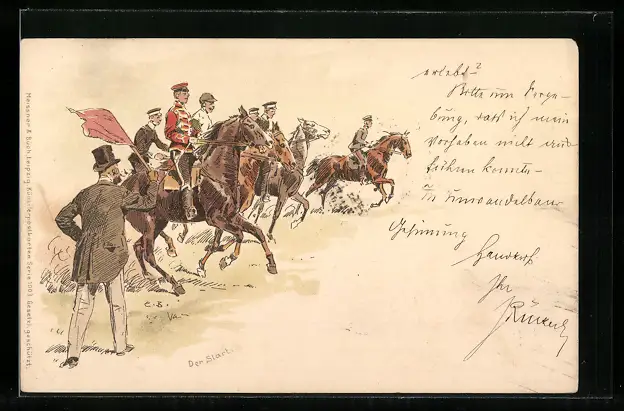 Meissner & Buch, Leipzig. Künstlerpostkarten Serie 1001. Gesetzl. geschützt.
erlebt?
Bitte um Verge-
bung, daß ich mein
Vorhaben nicht aus
führen konnte.
In unwandelbarer
Gesinnung
Ihr
C.B.
Der Start.